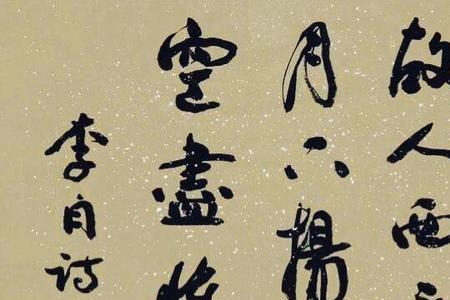 故人西
月下揚
空盡
李白詩